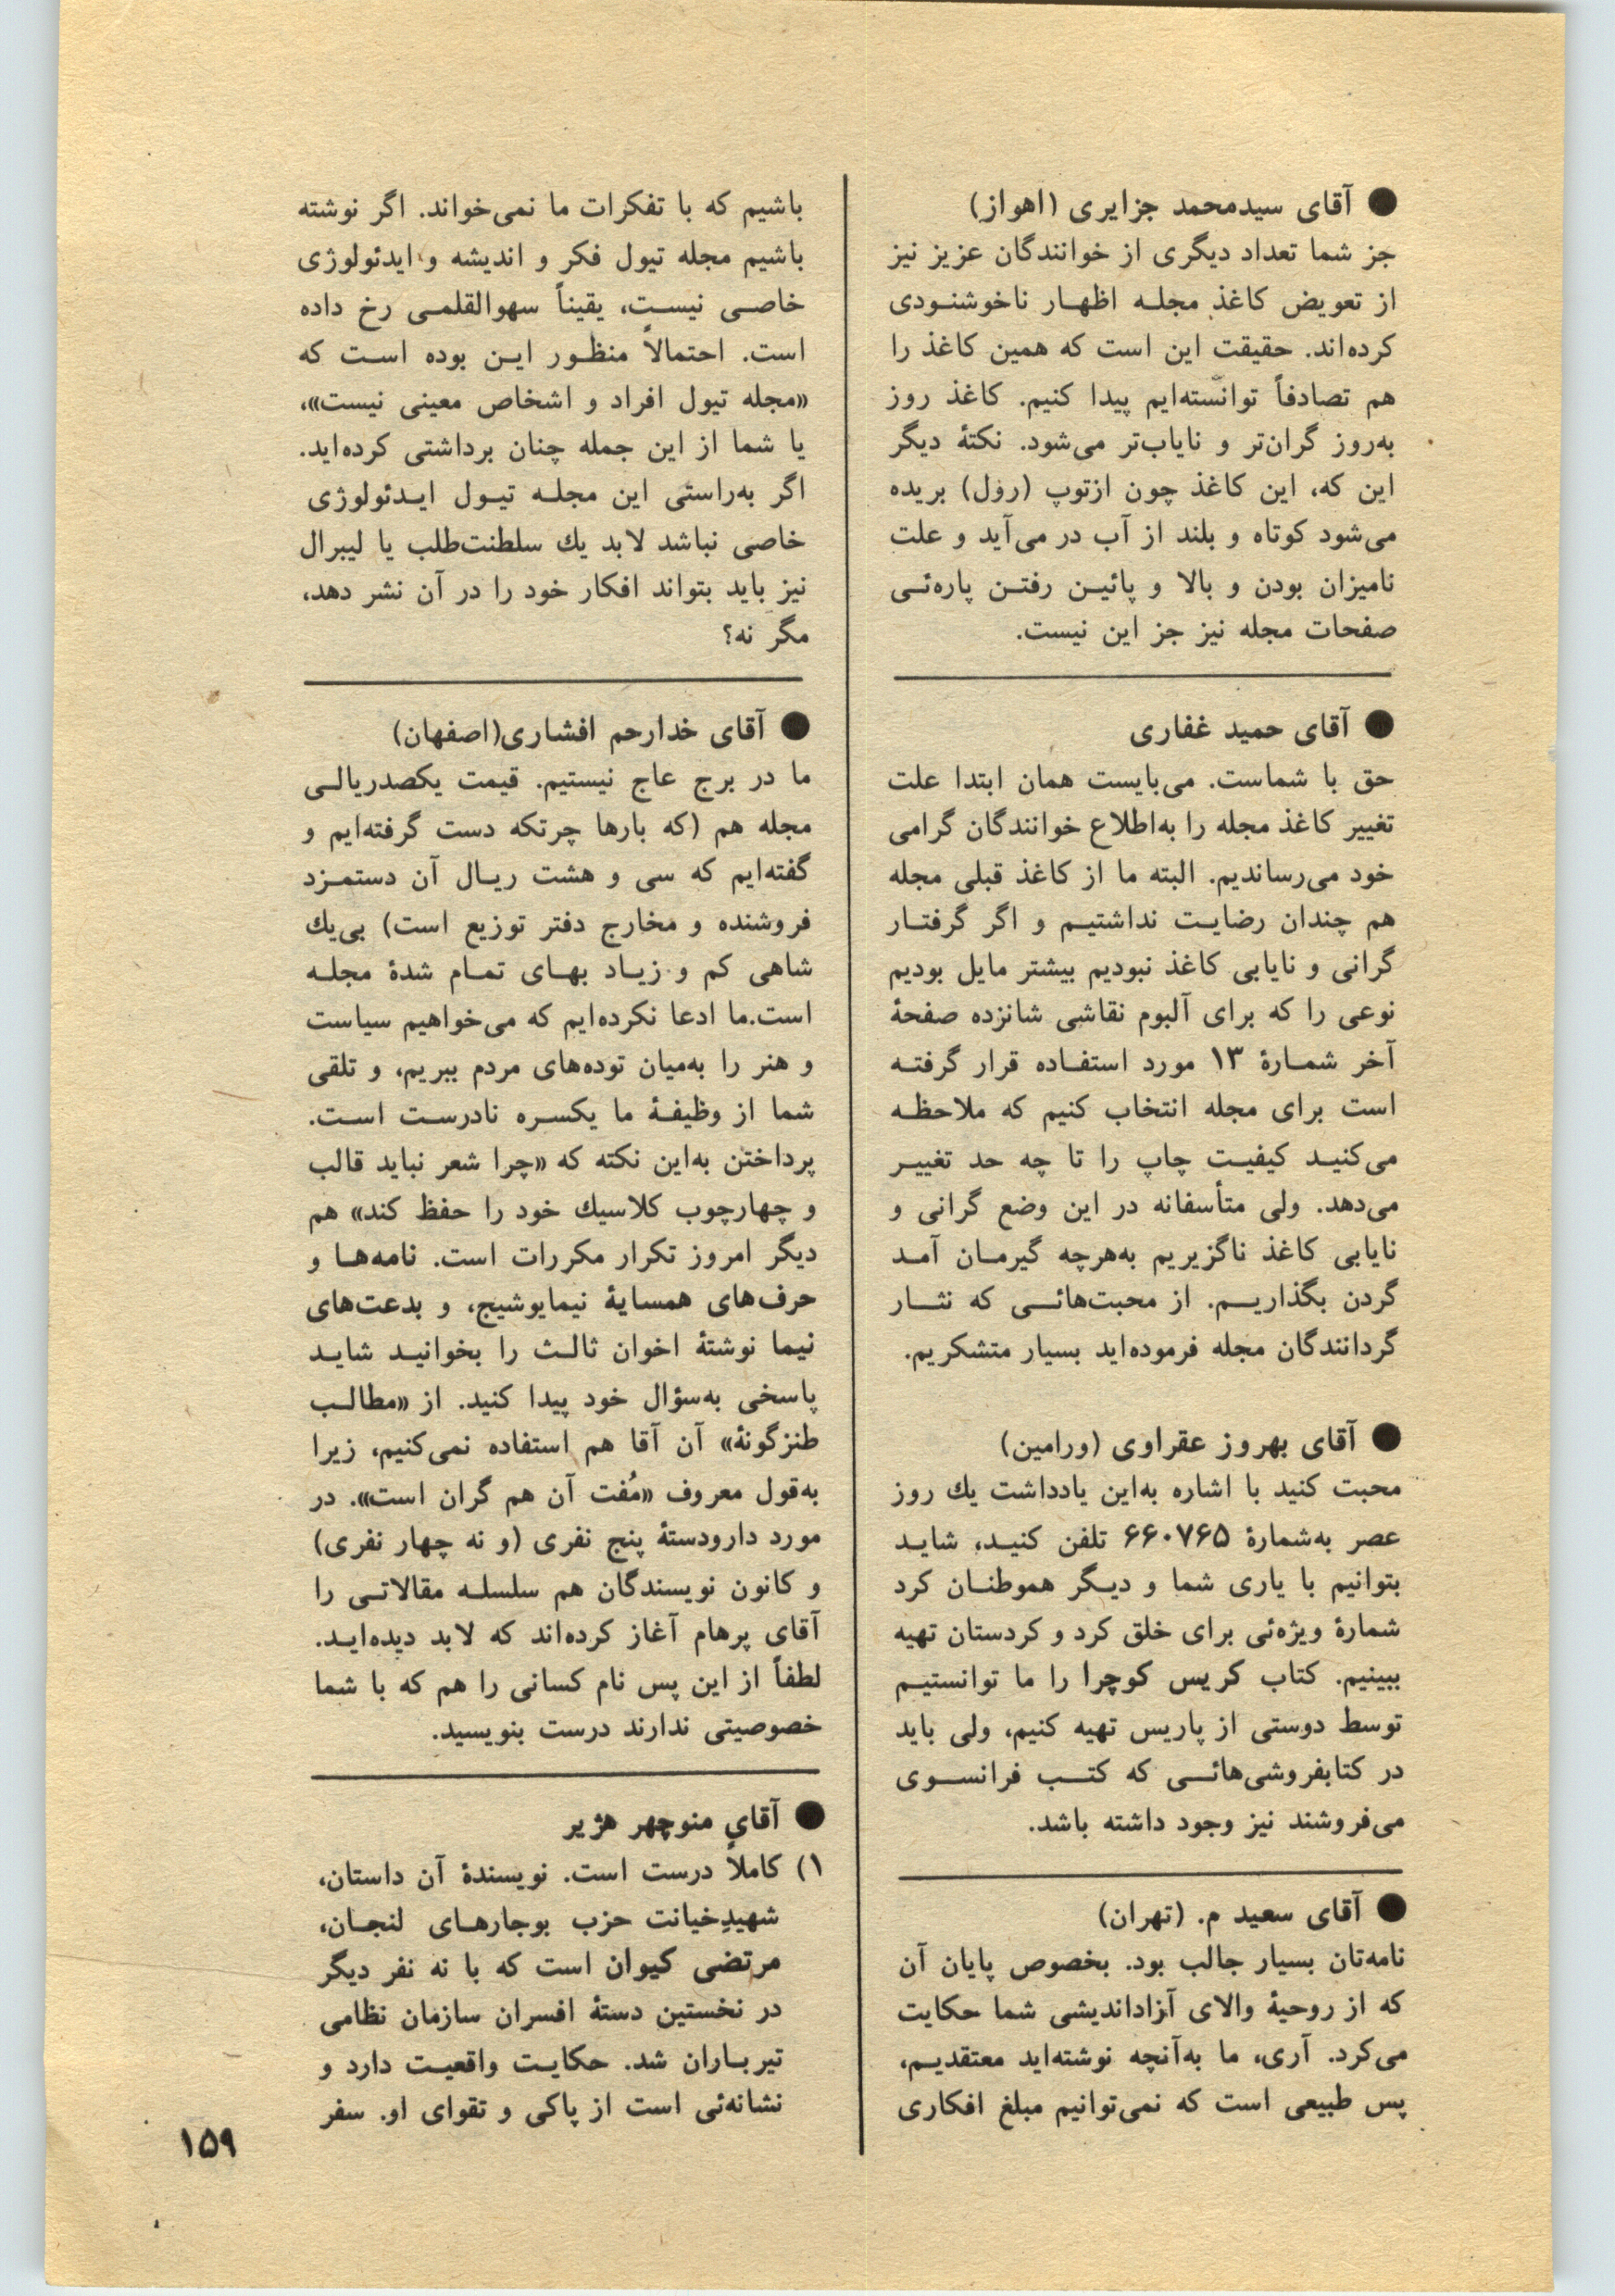 ● آقای سیدمحمد جزایری (اهواز)
جز شما تعداد دیگری از خوانندگان عزیز نیز
از تعویض کاغذ مجلـه اظهـار ناخوشنـودی
کرده‌اند. حقیقت این است که همین کاغذ را
هم تصادفاً توانسته‌ایم پیدا کنیم. کاغذ روز
به‌روز گران‌تر و نایاب‌تر می‌شود. نکتهٔ دیگر
این که، این کاغذ چون ازتوپ (رول) بریده
می‌شود کوتاه و بلند از آب در می‌آید و علت
نامیزان بودن و بالا و پائیـن رفتـن پاره‌ئـی
صفحات مجله نیز جز این نیست.
● آقای حمید غفاری
حق با شماست. می‌بایست همان ابتدا علت
تغییر کاغذ مجله را به‌اطلاع خوانندگان گرامی
خود می‌رساندیم. البته ما از کاغذ قبلی مجله
هم چندان رضایـت نداشتیـم و اگر گرفتـار
گرانی و نایابی کاغذ نبودیم بیشتر مایل بودیم
نوعی را که برای آلبوم نقاشی شانزده صفحهٔ
آخر شمـارهٔ ۱۳ مورد استفـاده قرار گرفتـه
است برای مجله انتخاب کنیم که ملاحظـه
می‌کنیـد کیفیـت چاپ را تا چه حد تغییـر
می‌دهد. ولی متأسفانه در این وضع گرانی و
نایابی کاغذ ناگزیریم به‌هرچه گیرمـان آمـد
گردن بگذاریـم. از محبت‌هائـی که نثـار
گردانندگان مجله فرموده‌اید بسیار متشکریم.
● آقای بهروز عقراوی (ورامین)
محبت کنید با اشاره به‌این یادداشت یك روز
عصر به‌شمارهٔ ۶۶۰۷۶۵ تلفن کنیـد، شایـد
بتوانیم با یاری شما و دیـگر هموطنـان کرد
شمارهٔ ویژه‌ئی برای خلق کرد و کردستان تهیه
ببینیم. کتاب کریس کوچرا را ما توانستیـم
توسط دوستی از پاریس تهیه کنیم، ولی باید
در کتابفروشی‌هائـی که کتـب فرانسـوی
می‌فروشند نیز وجود داشته باشد.
● آقای سعید م. (تهران)
نامه‌تان بسیار جالب بود. بخصوص پایان آن
که از روحیهٔ والای آزاداندیشی شما حکایت
می‌کرد. آری، ما به‌آنچه نوشته‌اید معتقدیـم،
پس طبیعی است که نمی‌توانیم مبلغ افکاری
باشیم که با تفکرات ما نمی‌خواند. اگر نوشته
باشیم مجله تیول فکر و اندیشه و ایدئولوژی
خاصـی نیسـت، یقیناً سهوالقلمـی رخ داده
است. احتمالاً منظـور ایـن بوده اسـت که
«مجله تیول افراد و اشخاص معینی نیست»،
یا شما از این جمله چنان برداشتی کرده‌اید.
اگر به‌راستی این مجلـه تیـول ایـدئولوژی
خاصی نباشد لابد یك سلطنت‌طلب یا لیبرال
نیز باید بتواند افکار خود را در آن نشر دهد،
مگر نه؟
● آقای خدارحم افشاری(اصفهان)
ما در برج عاج نیستیم. قیمت یکصدریالـی
مجله هم (که بارها چرتکه دست گرفته‌ایم و
گفته‌ایم که سی و هشت ریـال آن دستمـزد
فروشنده و مخارج دفتر توزیع است) بی‌یك
شاهی کم و زیـاد بهـای تمـام شدهٔ مجلـه
است.ما ادعا نکرده‌ایم که می‌خواهیم سیاست
و هنر را به‌میان توده‌های مردم ببریم، و تلقی
شما از وظیفـهٔ ما یکسـره نادرسـت اسـت.
پرداختن به‌این نکته که «چرا شعر نباید قالب
و چهارچوب کلاسیك خود را حفظ کند» هم
دیگر امروز تکرار مکررات است. نامه‌هـا و
حرف‌های همسایهٔ نیمایوشیج، و بدعت‌های
نیما نوشتهٔ اخوان ثالـث را بخوانیـد شایـد
پاسخی به‌سؤال خود پیدا کنید. از «مطالـب
طنزگونهٔ» آن آقا هم استفاده نمی‌کنیم، زیرا
به‌قول معروف «مُفت آن هم گران است». در
مورد دارودستهٔ پنج نفری (و نه چهار نفری)
و کانون نویسندگان هم سلسلـه مقالاتـی را
آقای پرهام آغاز کرده‌اند که لابد دیده‌ایـد.
لطفاً از این پس نام کسانی را هم که با شما
خصوصیتی ندارند درست بنویسید.
● آقای منوچهر هژیر
۱) کاملاً درست است. نویسندهٔ آن داستان،
شهیدِخیانت حزب بوجارهـای لنجـان،
مرتضی کیوان است که با نه نفر دیگر
در نخستین دستهٔ افسران سازمان نظامی
تیربـاران شد. حکایـت واقعیـت دارد و
نشانه‌ئی است از پاکی و تقوای او. سفر
۱۵۹